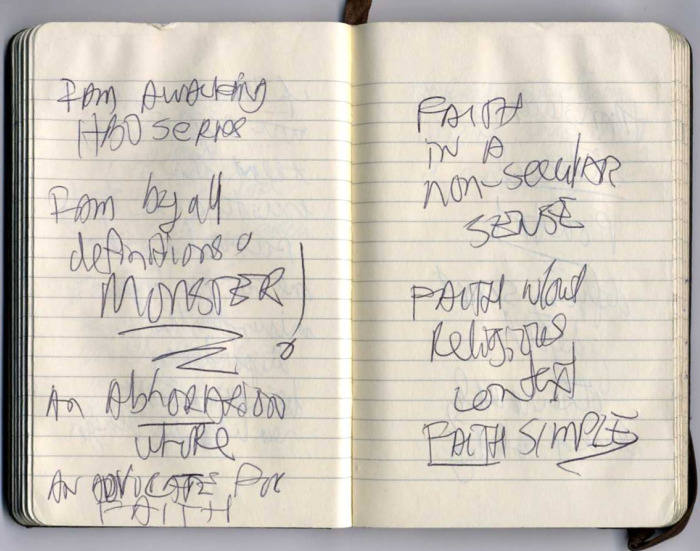 I am A walking
HBO series
I am by all
definitions a
MONSTER
An AbhORAtion
whore
AN ADVOCATE For
FAITH
FAITH
IN A
non-secular
SENSE
FAITH w/out
Religious
context
FAITH SIMPLE